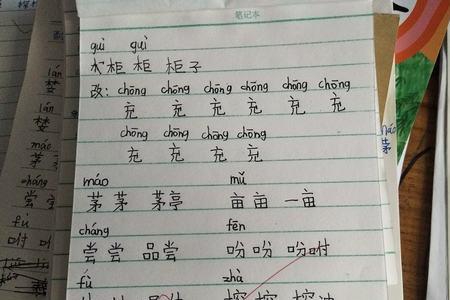 笔记本
guì guì
柜 柜 柜子
改: chōng chōng chōng chōng chōng chōng
充 充 充 充 充 充
chōng chōng chōng chōng
充 充 充 充
máo mǔ
茅 茅 茅亭 亩 亩 一亩
cháng fēn
尝 尝 品尝 吩 吩 吩咐
fú zhà
lán
lán
máo
茅
cháng
尝
fù
咐
máo
茅